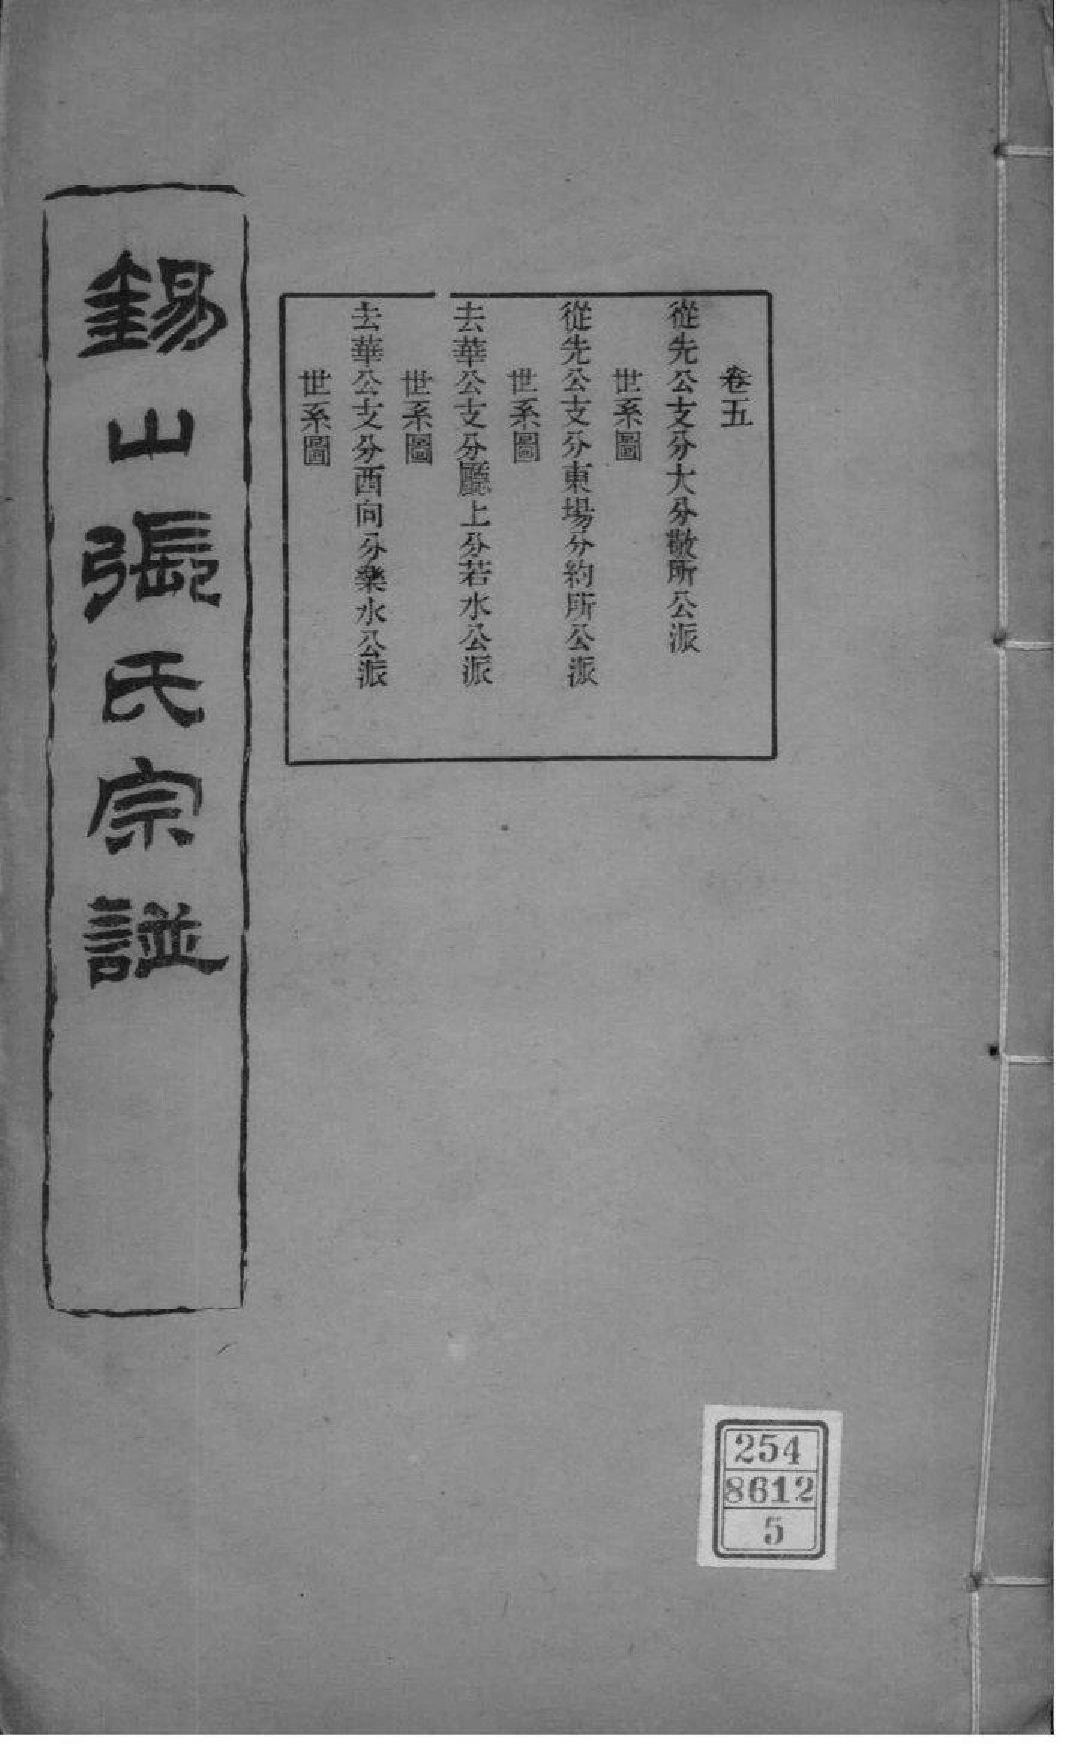 卷五
從先公支分大分敬所公派
世系圖
從先公支分東場分約所公派
世系圖
去華公支分廳上分若水公派
世系圖
去華公支分西向分樂水公派
世系圖
錫山張氏宗譜
254
8612
5